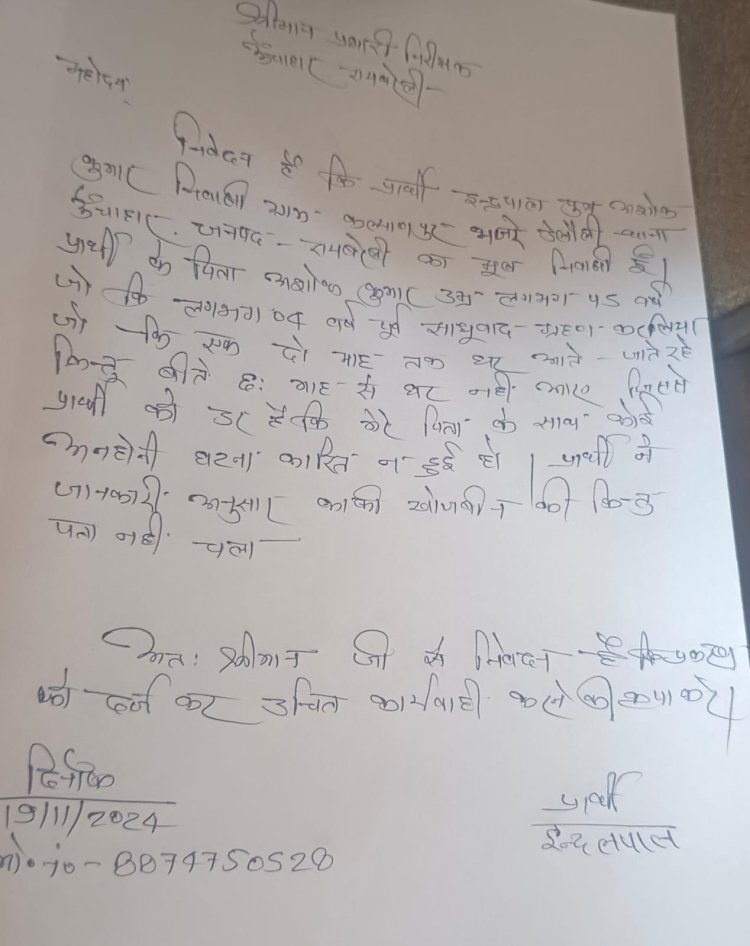 श्रीमान प्रभारी निरीक्षक
ऊँचाहार रायबरेली-
महोदय,
निवेदन है कि प्रार्थी इन्द्रपाल पुत्र अशोक
कुमार निवासी ग्राम- कल्यानपुर मजरे थाना
ऊँचाहार. जनपद- रायबरेली का मूल निवासी है।
प्रार्थी के पिता अशोक कुमार उम्र लगभग वर्ष
जो कि लगभग 04 वर्ष पूर्व साधूवाद- ग्रहण- कर लिया
जो कि एक दो माह तक घर आते - जाते रहे
किन्तु बीते छः माह से घर नही आए जिससे
प्रार्थी को डर है कि मेरे पिता के साथ कोई
अनहोनी घटना कारित न हुई हो। प्रार्थी ने
जानकारी अनुसार काफी खोजबीन की किन्तु
पता नही चला -
अतः श्रीमान जी से निवेदन है कि प्रकरण
को दर्ज कर उचित कार्यवाही करने की कृपा करे।
दिनाँक
19/11/2024
मो०नं०- 8874750528
प्रार्थी
इन्द्रलपाल